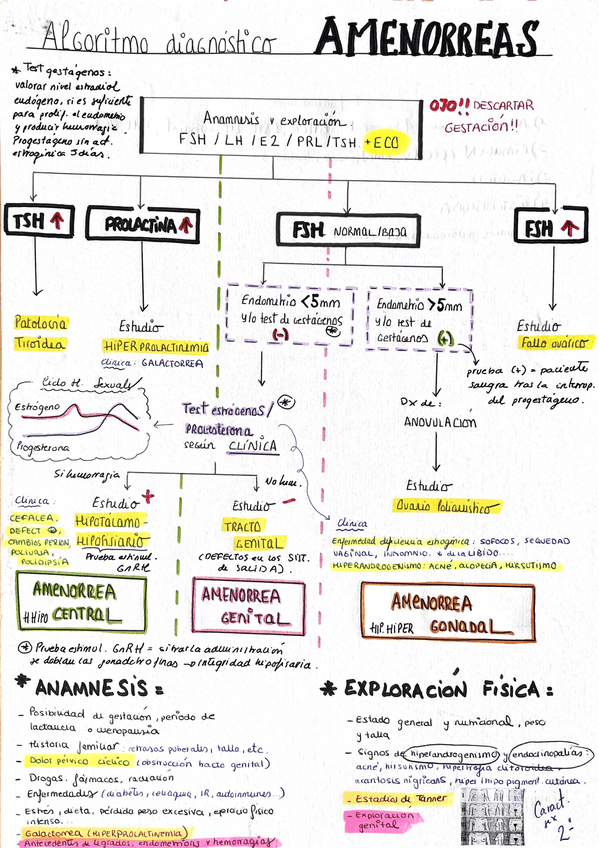 Algoritmo diagnóstico AMENORREAS
* Test gestágenos:
valorar nivel estradiol
endógeno, si es suficiente
para prolif. el endometrio
y producir hemorragia.
Progestágeno sin act.
estrogénica 5 días.
Anamnesis y exploración:
FSH / LH / E2 / PRL / TSH + ECO
OJO!! DESCARTAR
GESTACIÓN!!
TSH ↑
PROLACTINA ↑
FSH NORMAL/BAJA
FSH ↑
Patología
Tiroidea
Estudio
HIPERPROLACTINEMIA
clínica: GALACTORREA
Endometrio <5mm
y/o test de gestágenos *
(-)
Endometrio >5mm
y/o test de
gestágenos (+)
Estudio
Fallo ovárico
prueba (+) = paciente
sangra tras la interrup.
del progestágeno.
Ciclo H. Sexuales
Estrógeno
Progesterona
Test estrógenos/ *
PROGESTERONA
según CLÍNICA
Dx de:
ANOVULACIÓN
Estudio
Ovario Poliquístico
Si hemorragia
No hem.
Clínica:
CEFALEA,
DEFECT
CAMBIOS PERSON.
POLIURIA,
POLIDIPSIA
Estudio +
HIPOTÁLAMO-
HIPOFISIARIO
Prueba estimul.
GnRH
Estudio -
TRACTO
GENITAL
(DEFECTOS EN LOS SIST.
DE SALIDA).
Clínica
Enfermedad deficiencia estrogénica: SOFOCOS, SEQUEDAD
VAGINAL, INSOMNIO, ↓ de la LIBIDO...
HIPERANDROGENISMO: ACNÉ, ALOPECIA, HIRSUTISMO
AMENORREA
HHipo CENTRAL
AMENORREA
GENITAL
AMENORREA
HIP. HIPER GONADAL
* Prueba estimul. GnRH = si tras la administración
se doblan las gonadotrofinas → integridad hipofisaria.
* ANAMNESIS =
- Posibilidad de gestación, periodo de
lactancia o menopausia
- Historia familiar: retrasos puberales, talla, etc.
- Dolor pélvico cíclico (obstrucción tracto genital)
- Drogas, fármacos, radiación
- Enfermedades (diabetes, celiaquía, IR, autoinmunes..)
- Estrés, dieta, pérdida peso excesiva, ejercicio físico
intenso...
- Galactorrea (HIPERPROLACTINEMIA)
- Antecedentes de legrados, endometriosis y hemorragias.
* EXPLORACIÓN FÍSICA =
- Estado general y nutricional, peso
y talla
- Signos de hiperandrogenismo y endocrinopatías:
acné, hirsutismo, hipertrofia clitoroidea,
acantosis nigricans, hiper/hipo pigment. cutánea.
- Estadios de Tanner
- Exploración
genital
Caract.
sex
2º